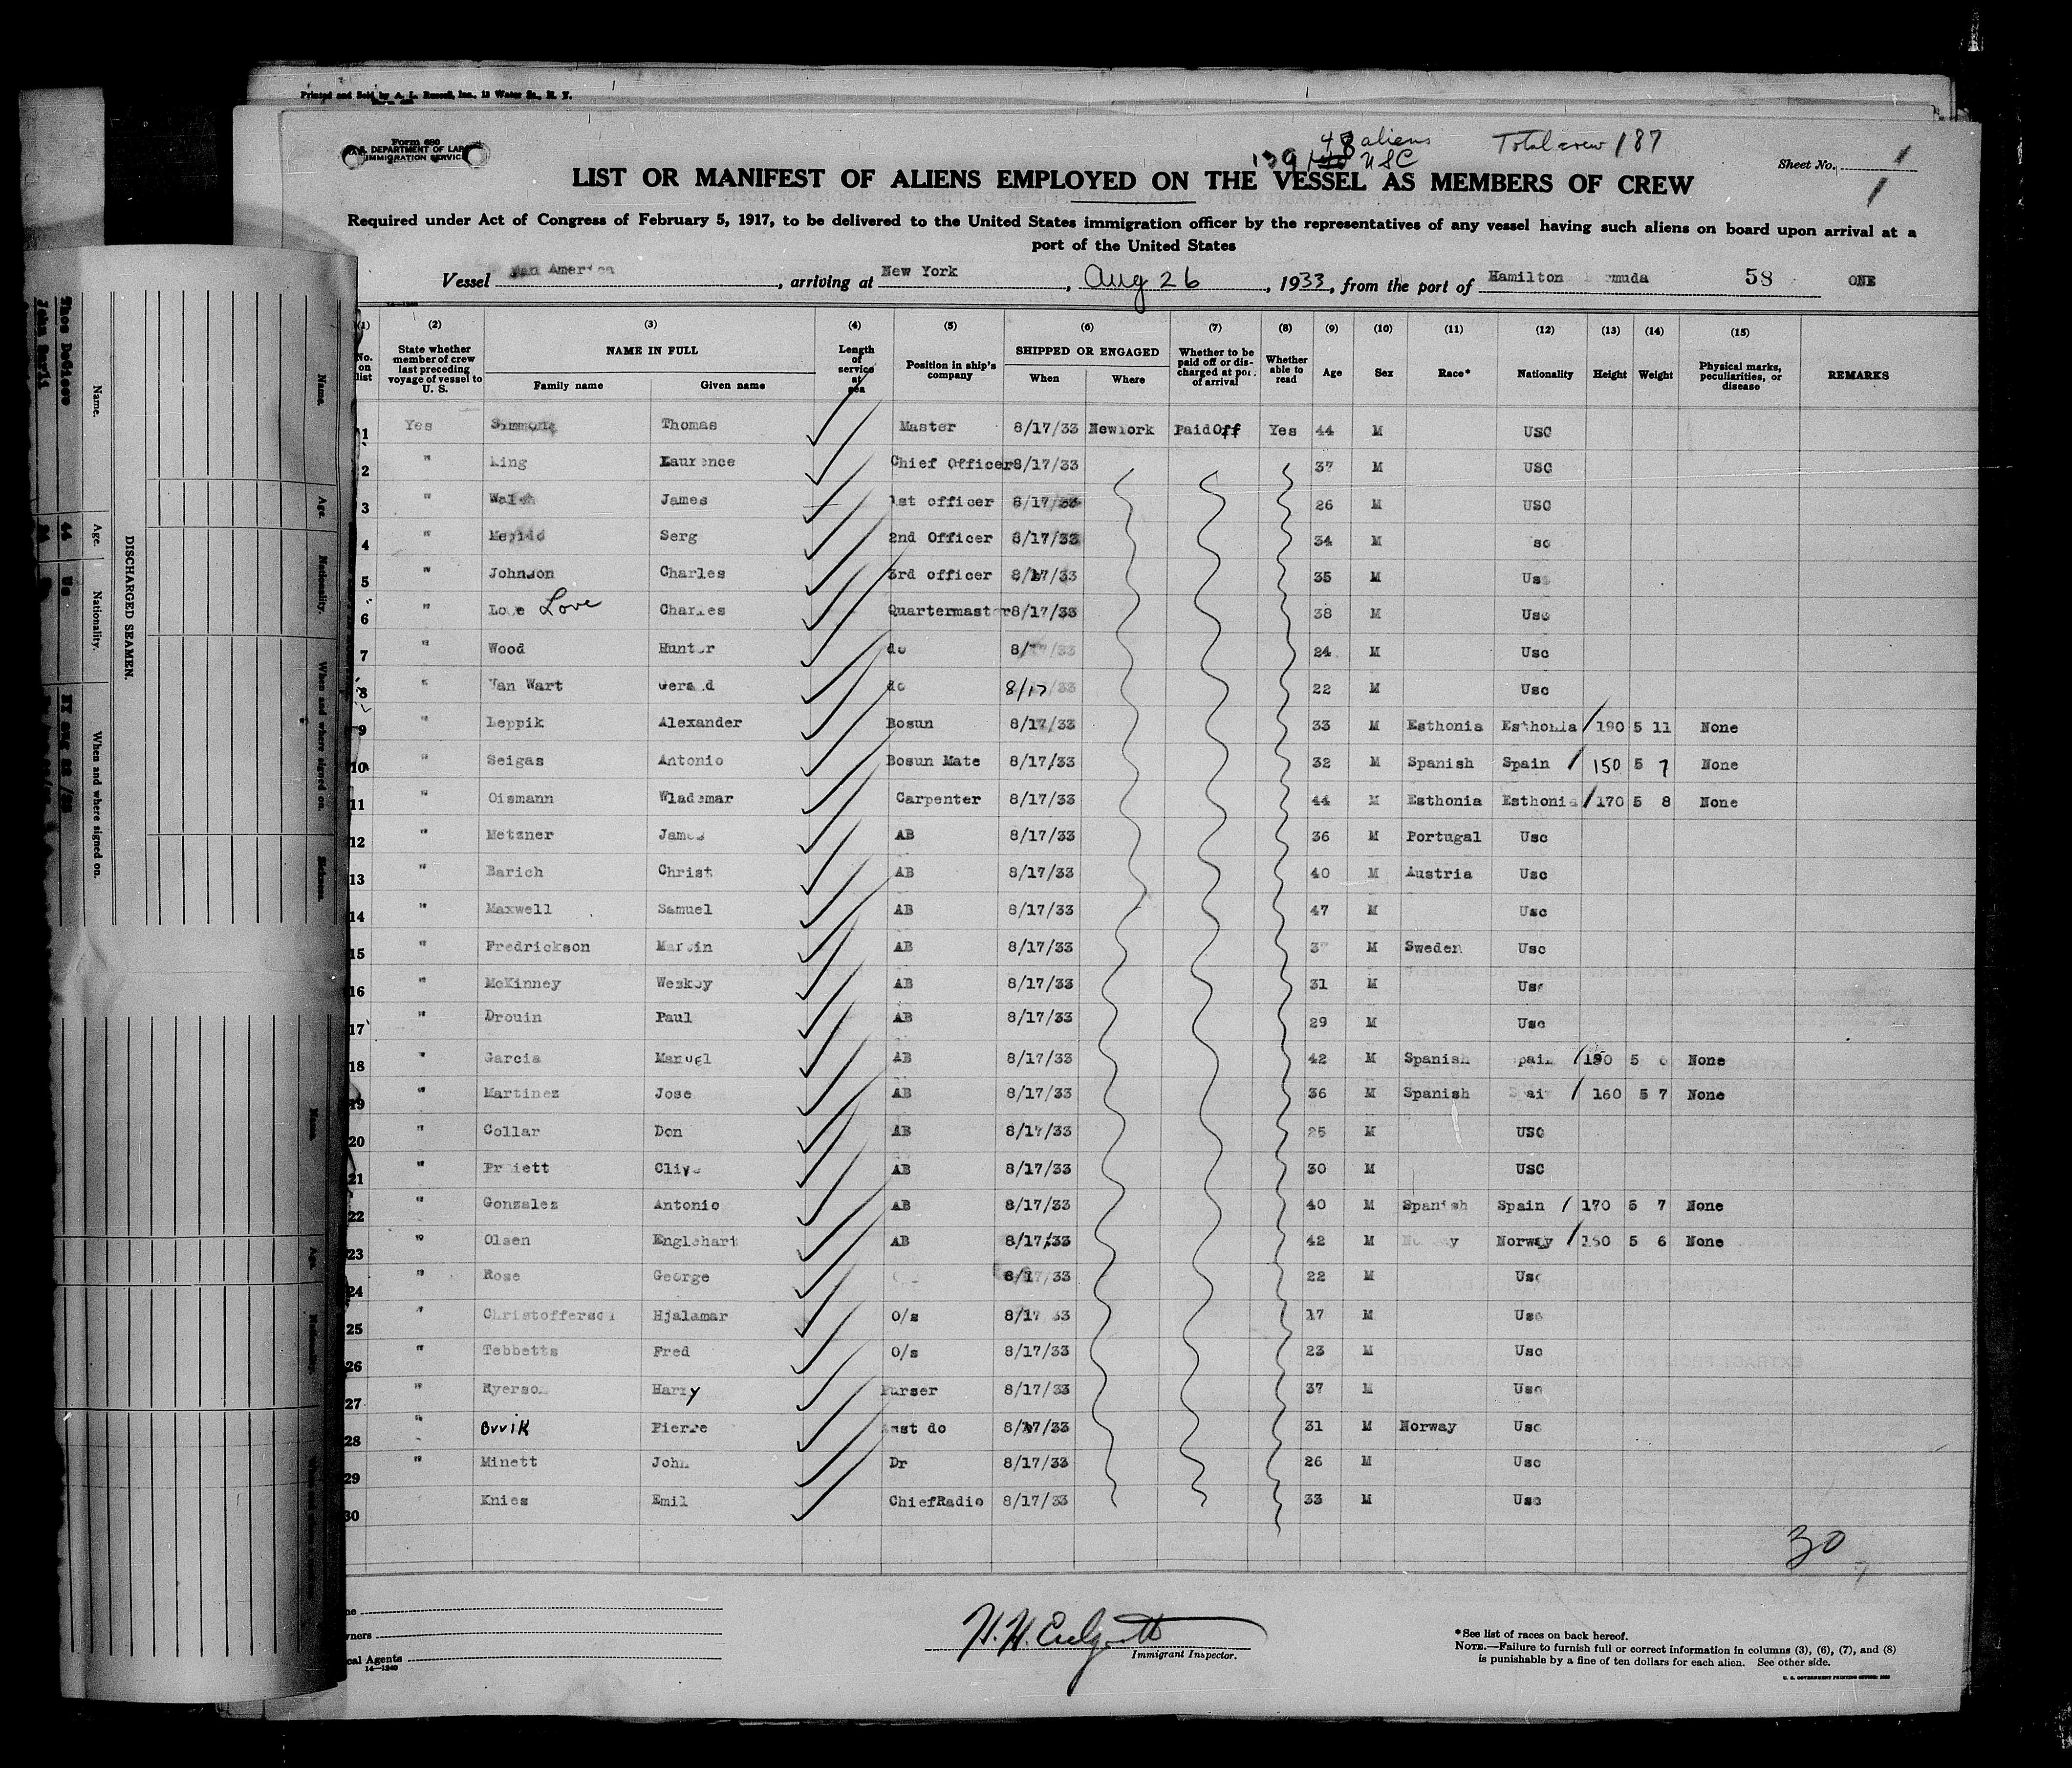 Printed and Sold by A. L. Russell, Inc., 13 Water St., N. Y.
Form 680
U.S. DEPARTMENT OF LABOR
IMMIGRATION SERVICE
48 aliens
139 USC
Total crew 187
Sheet No. 1
1
LIST OR MANIFEST OF ALIENS EMPLOYED ON THE VESSEL AS MEMBERS OF CREW
Required under Act of Congress of February 5, 1917, to be delivered to the United States immigration officer by the representatives of any vessel having such aliens on board upon arrival at a
port of the United States
Vessel America, arriving at New York, Aug 26, 1933, from the port of Hamilton 58 ONE
14—1240
(1) (2) (3) (4) (5) (6) (7) (8) (9) (10) (11) (12) (13) (14) (15)
No. on list State whether member of crew last preceding voyage of vessel to U. S. NAME IN FULL Family name Given name Length of service at sea Position in ship's company SHIPPED OR ENGAGED When Where Whether to be paid off or discharged at port of arrival Whether able to read Age Sex Race* Nationality Height Weight Physical marks, peculiarities, or disease REMARKS
1 Yes Simmons Thomas Master 8/17/33 NewYork PaidOff Yes 44 M USC
2 " King Laurence Chief Officer 8/17/33 37 M USC
3 " Walsh James 1st officer 8/17/33 26 M USC
4 " Serg 2nd Officer 8/17/33 34 M sc
5 " Johnson Charles 3rd officer 8/17/33 35 M Us
6 " Love Love Charles Quartermaster 8/17/33 38 M Usc
7 " Wood Hunter do 8/17/33 24 M Usc
8 " Van Wart Gerald do 8/17/33 22 M Usc
9 " Leppik Alexander Bosun 8/17/33 33 M Esthonia Esthonia / 190 5 11 None
10 " Seigas Antonio Bosun Mate 8/17/33 32 M Spanish Spain / 150 5 7 None
11 " Oismann Wlademar Carpenter 8/17/33 44 M Esthonia Esthonia / 170 5 8 None
12 " Metzner James AB 8/17/33 36 M Portugal Usc
13 " Barich Christ AB 8/17/33 40 M Austria Usc
14 " Maxwell Samuel AB 8/17/33 47 M Usc
15 " Fredrickson Martin AB 8/17/33 37 M Sweden Usc
16 " McKinney Weskoy AB 8/17/33 31 M Usc
17 " Drouin Paul AB 8/17/33 29 M Usc
18 " Garcia Manuel AB 8/17/33 42 M Spanish pain / 190 5 None
19 " Martinez Jose AB 8/17/33 36 M Spanish Spain / 160 5 7 None
20 " Collar Don AB 8/17/33 25 M USC
21 " Pruiett Clive AB 8/17/33 30 M USC
22 " Gonzalez Antonio AB 8/17/33 40 M Spanish Spain / 170 5 7 None
23 " Olsen Englehart AB 8/17/33 42 M Norway Norway / 150 5 6 None
24 " Rose George 8/17/33 22 M Usc
25 " Christofferson Hjalamar O/s 8/17/33 17 M Usc
26 " Tebbetts Fred O/s 8/17/33 23 M Usc
27 " Ryerson Harry Purser 8/17/33 37 M Usc
28 " Bvvik Pierre asst do 8/17/33 31 M Norway Usc
29 " Minett John Dr 8/17/33 26 M Usc
30 Knies Emil ChiefRadio 8/17/33 33 M Usc
30
Immigrant Inspector.
14—1240
*See list of races on back hereof.
NOTE.—Failure to furnish full or correct information in columns (3), (6), (7), and (8)
is punishable by a fine of ten dollars for each alien. See other side.
U. S. GOVERNMENT PRINTING OFFICE
DISCHARGED SEAMEN.
Name. Age. Nationality. When and where signed on.
Thos DeCicco 44 Us
Name. Age. Nationality. When and where signed on.